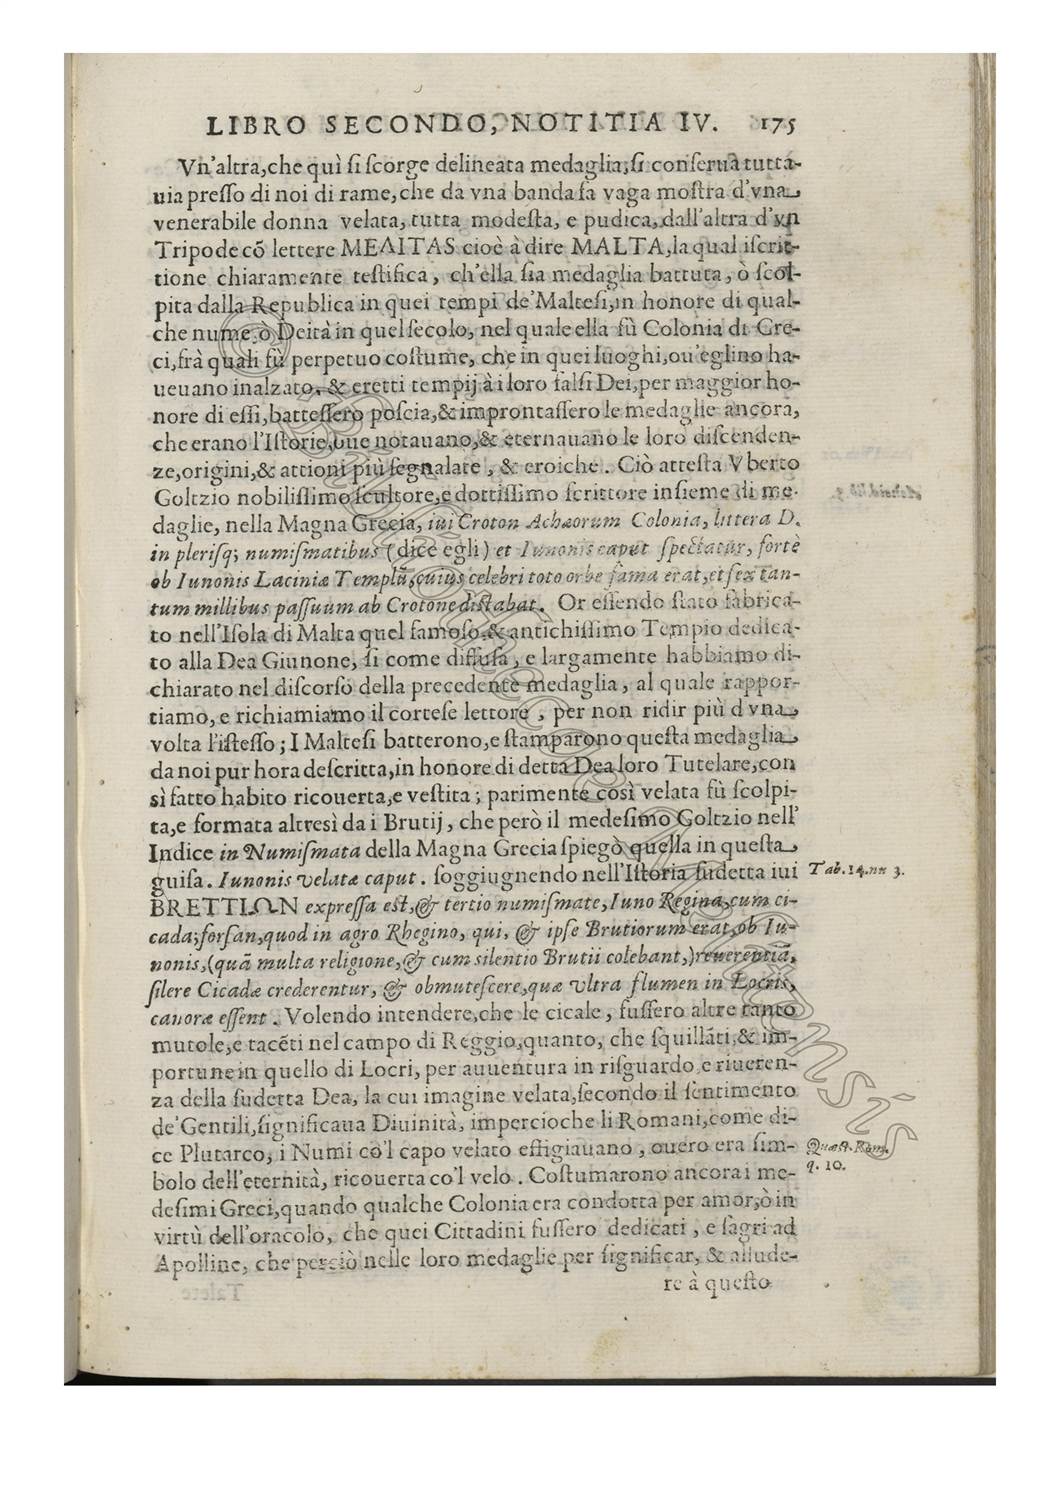 LIBRO SECONDO, NOTITIA IV. 175
Vn'altra, che quì ſi ſcorge delineata medaglia, ſi conſerua tutta-
uia preſſo di noi di rame, che da vna banda fa vaga moſtra d'vna
venerabile donna velata, tutta modeſta, e pudica, dall'altra d'vn
Tripode cõ lettere ΜΕΛΙΤΑS cioè à dire MALTA, la qual iſcrit-
tione chiaramente teſtifica, ch'ella ſia medaglia battuta, ò ſcol-
pita dalla Republica in quei tempi de'Malteſi, in honore di qual-
che nume, ò Deità in quel ſecolo, nel quale ella fù Colonia di Gre-
ci, frà quali fù perpetuo coſtume, che in quei luoghi, ou'eglino ha-
ueuano inalzato, & eretti tempij à i loro falſi Dei, per maggior ho-
nore di eſſi, batteſſero poſcia, & improntaſſero le medaglie ancora,
che erano l'Iſtorie, oue notauano, & eternauano le loro diſcenden-
ze, origini, & attioni più ſegnalate, & eroiche. Ciò atteſta Vberto
Goltzio nobiliſſimo ſcultore, e dottiſſimo ſcrittore inſieme di me-
daglie, nella Magna Grecia, iui Croton Achæorum Colonia, littera D.
in pleriſq; numiſmatibus (dice egli) et Iunonis caput ſpectatur, fortè
ob Iunonis Laciniæ Templũ, cuius celebri toto orbe fama erat, et ſex tan-
tum millibus paſſuum ab Crotone diſtabat. Or eſſendo ſtato fabrica-
to nell'Iſola di Malta quel famoſo, & antichiſſimo Tempio dedica-
to alla Dea Giunone, ſi come diffuſa, e largamente habbiamo di-
chiarato nel diſcorſo della precedente medaglia, al quale rappor-
tiamo, e richiamiamo il corteſe lettore, per non ridir più d vna
volta l'iſteſſo; I Malteſi batterono, e ſtamparono queſta medaglia
da noi pur hora deſcritta, in honore di detta Dea loro Tutelare, con
sì fatto habito ricouerta, e veſtita; parimente così velata fù ſcolpi-
ta, e formata altresì da i Brutij, che però il medeſimo Goltzio nell'
Indice in Numiſmata della Magna Grecia ſpiegò quella in queſta
guiſa. Iunonis velatæ caput. ſoggiugnendo nell'Iſtoria ſudetta iui
Tab. 14. nu 3.
BRETTIΩN expreſſa eſt, & tertio numiſmate, Iuno Regina, cum ci-
cada; forſan, quod in agro Rhegino, qui, & ipſe Brutiorum erat, ob Iu-
nonis, (quã multa religione, & cum ſilentio Brutii colebant,) reuerentiã,
ſilere Cicadæ crederentur, & obmuteſcere, quæ vltra flumen in Locris,
canoræ eſſent. Volendo intendere, che le cicale, fuſſero altre tanto
mutole, e tacẽti nel campo di Reggio, quanto, che ſquillãti, & im-
portune in quello di Locri, per auuentura in riſguardo, e riueren-
za della ſudetta Dea, la cui imagine velata, ſecondo il ſentimento
de'Gentili, ſignificaua Diuinità, impercioche li Romani, come di-
ce Plutarco, i Numi co'l capo velato effigiauano, ouero era ſim-
Quæſt. Rom.
q. 10.
bolo dell'eternità, ricouerta co'l velo. Coſtumarono ancora i me-
deſimi Greci, quando qualche Colonia era condotta per amor, ò in
virtù dell'oracolo, che quei Cittadini fuſſero dedicati, e ſagri ad
Apolline, che perciò nelle loro medaglie per ſignificar, & allude-
re à queſto